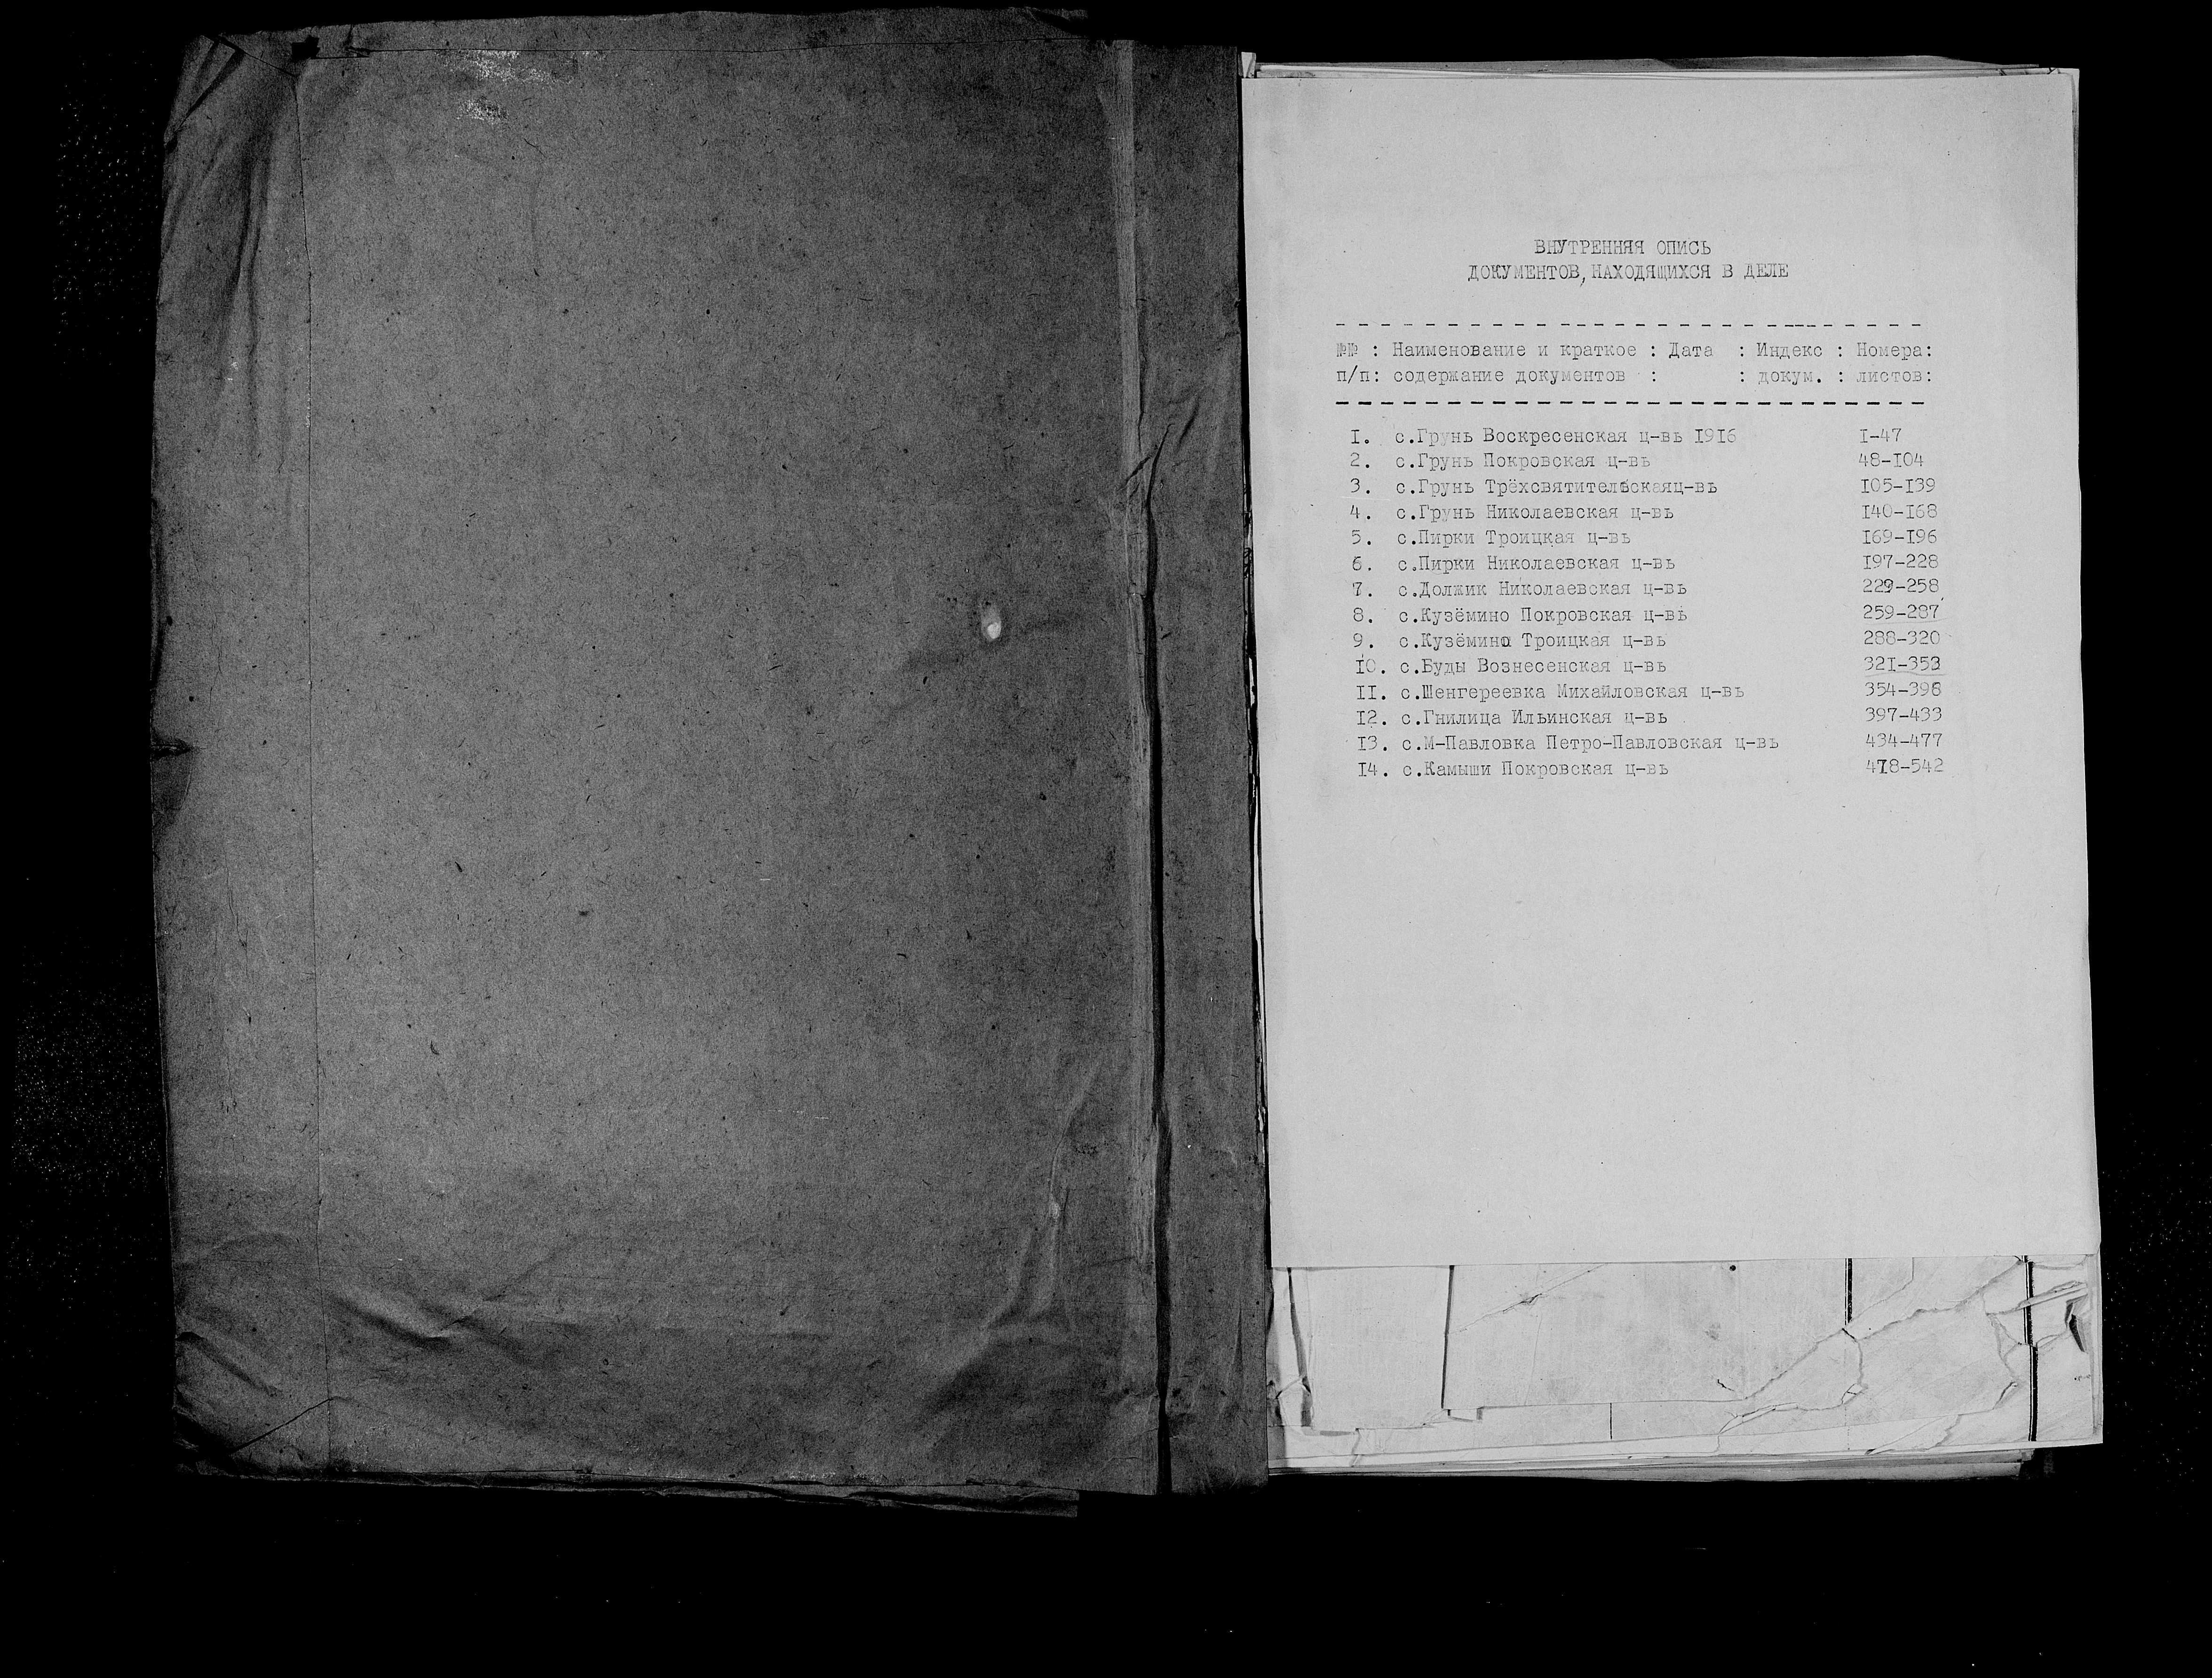 ВНУТРЕННЯЯ ОПИСЬ
ДОКУМЕНТОВ, НАХОДЯЩИХСЯ В ДЕЛЕ
№№ : Наименование и краткое : Дата : Индекс : Номера:
п/п: содержание документов : : докум. : листов:
I. с.Грунь Воскресенская ц-вь I9I6 I-47
2. с.Грунь Покровская ц-вь 48-I04
3. с.Грунь Трёхсвятительскаяц-вь I05-I39
4. с.Грунь Николаевская ц-вь I40-I68
5. с.Пирки Троицкая ц-вь I69-I96
6. с.Пирки Николаевская ц-вь I97-228
7. с.Должик Николаевская ц-вь 229-258
8. с.Кузёмино Покровская ц-вь 259-287
9. с.Кузёмино Троицкая ц-вь 288-320
I0. с.Буды Вознесенская ц-вь 32I-353
II. с.Шенгереевка Михайловская ц-вь 354-396
I2. с.Гнилица Ильинская ц-вь 397-433
I3. с.М-Павловка Петро-Павловская ц-вь 434-477
I4. с.Камыши Покровская ц-вь 478-542